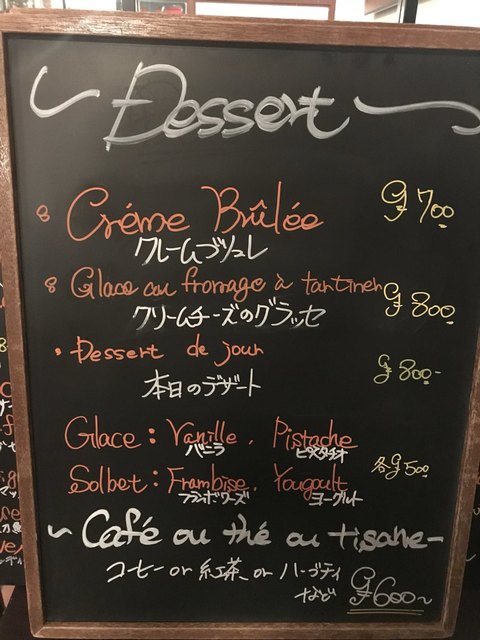 Dessert
Créme Brûlée ¥700
クレームブリュレ
Glace au fromage à tartiner ¥800
クリームチーズのグラッセ
Dessert de jour ¥800-
本日のデザート
Glace : Vanille, Pistache
バニラ ピスタチオ
各¥500
Solbet : Frambise, Yougoult
フランボワーズ ヨーグルト
Café ou thé ou tisane
コーヒー or 紅茶 or ハーブティ
など ¥600~